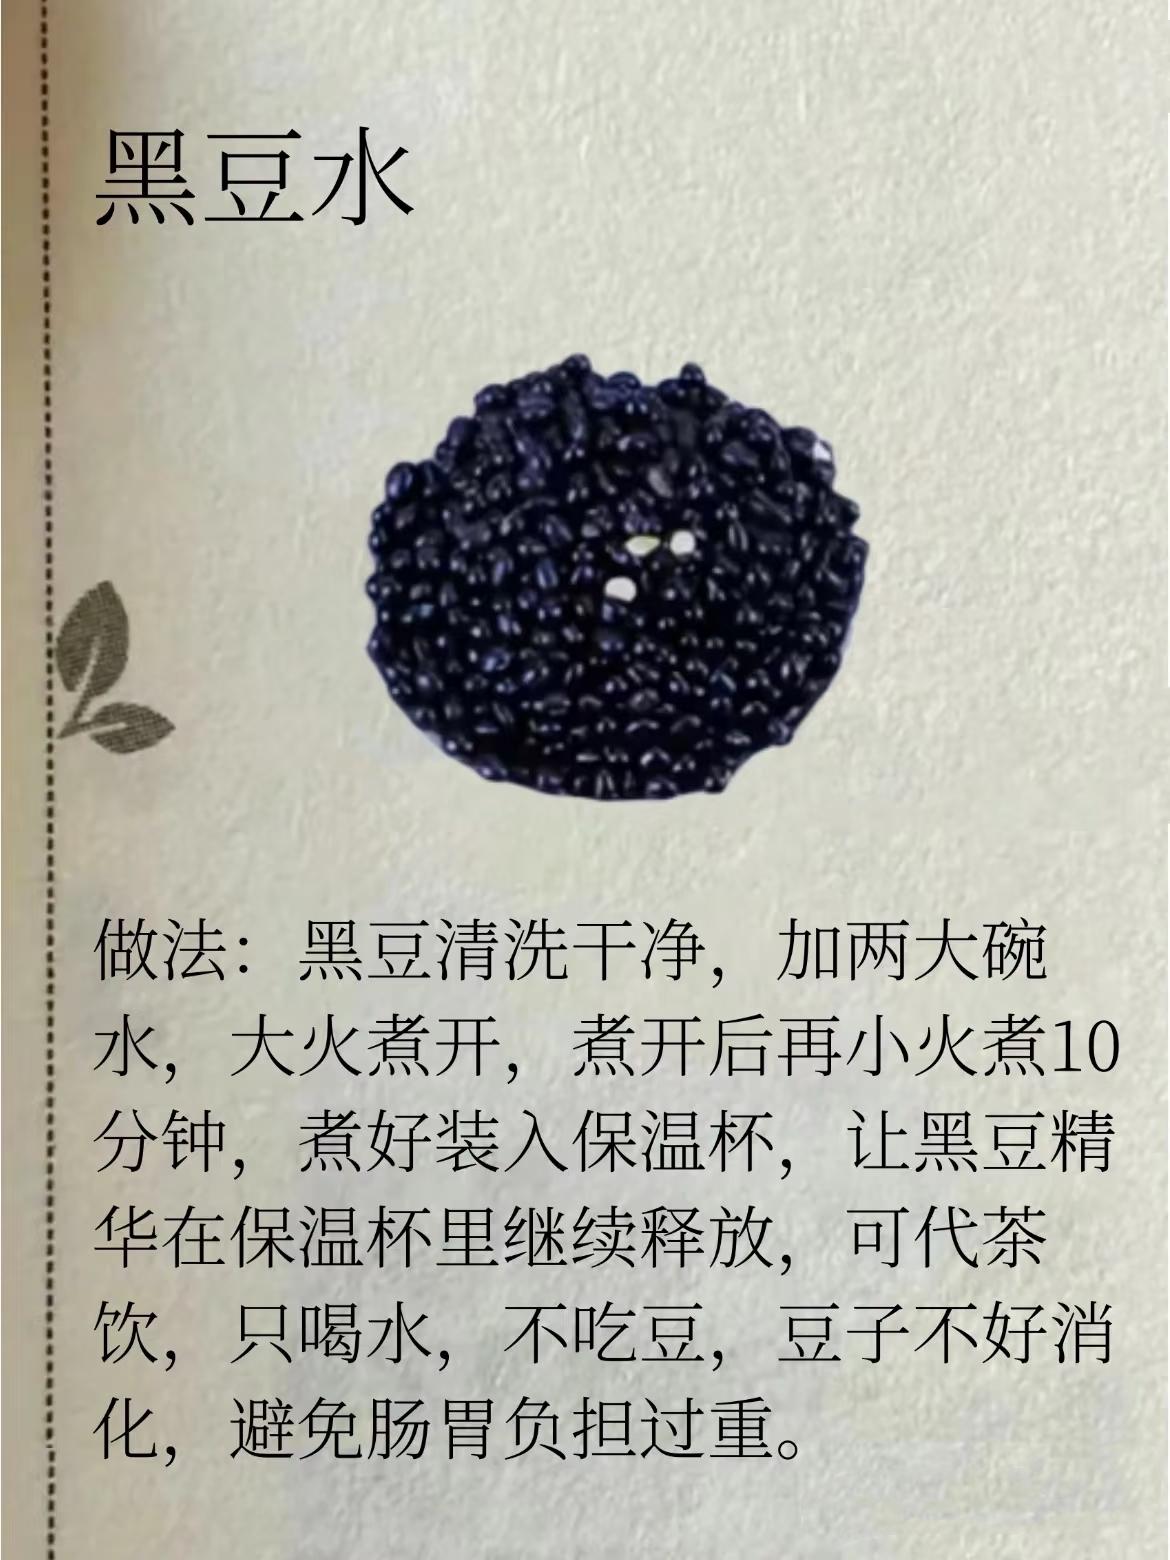 黑豆水
做法：黑豆清洗干净，加两大碗
水，大火煮开，煮开后再小火煮10
分钟，煮好装入保温杯，让黑豆精
华在保温杯里继续释放，可代茶
饮，只喝水，不吃豆，豆子不好消
化，避免肠胃负担过重。